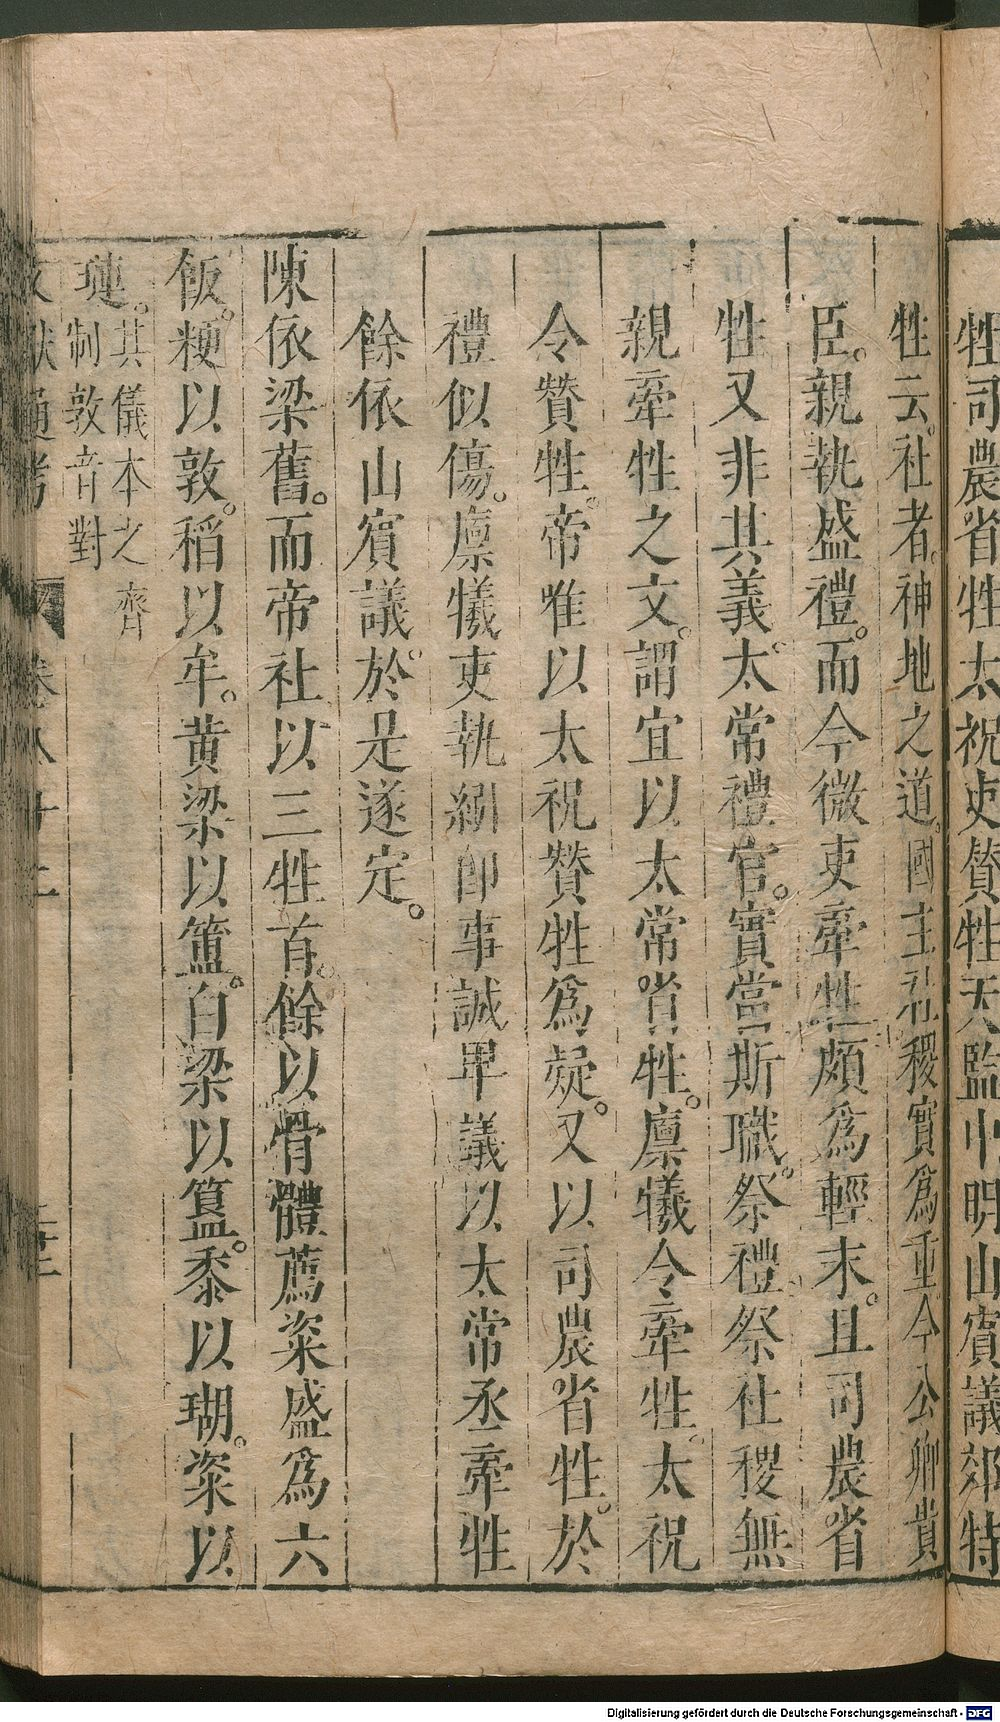 牲司農省牲太祝吏贊牲天監中明山賔議郊特
牲云社者神地之道國主社稷實爲重今公卿貴
臣親執盛禮而今微吏牽牲頗爲輕末且司農省
牲又非其義太常禮官實當斯職祭禮祭社稷無
親牽牲之文謂宜以太常省牲廩犧令牽牲太祝
令贊牲帝唯以太祝贊牲爲疑又以司農省牲於
禮似傷廩犧吏執紖卽事誠卑議以太常丞牽牲
餘依山賔議於是遂定
陳依梁舊而帝社以三牲首餘以骨體薦粢盛爲六
飯粳以敦稻以牟黃梁以簠白梁以簋黍以瑚粢以
璉其儀本之齊制敦音對
文獻通考 卷八十二
Digitalisierung gefördert durch die Deutsche Forschungsgemeinschaft - DFG